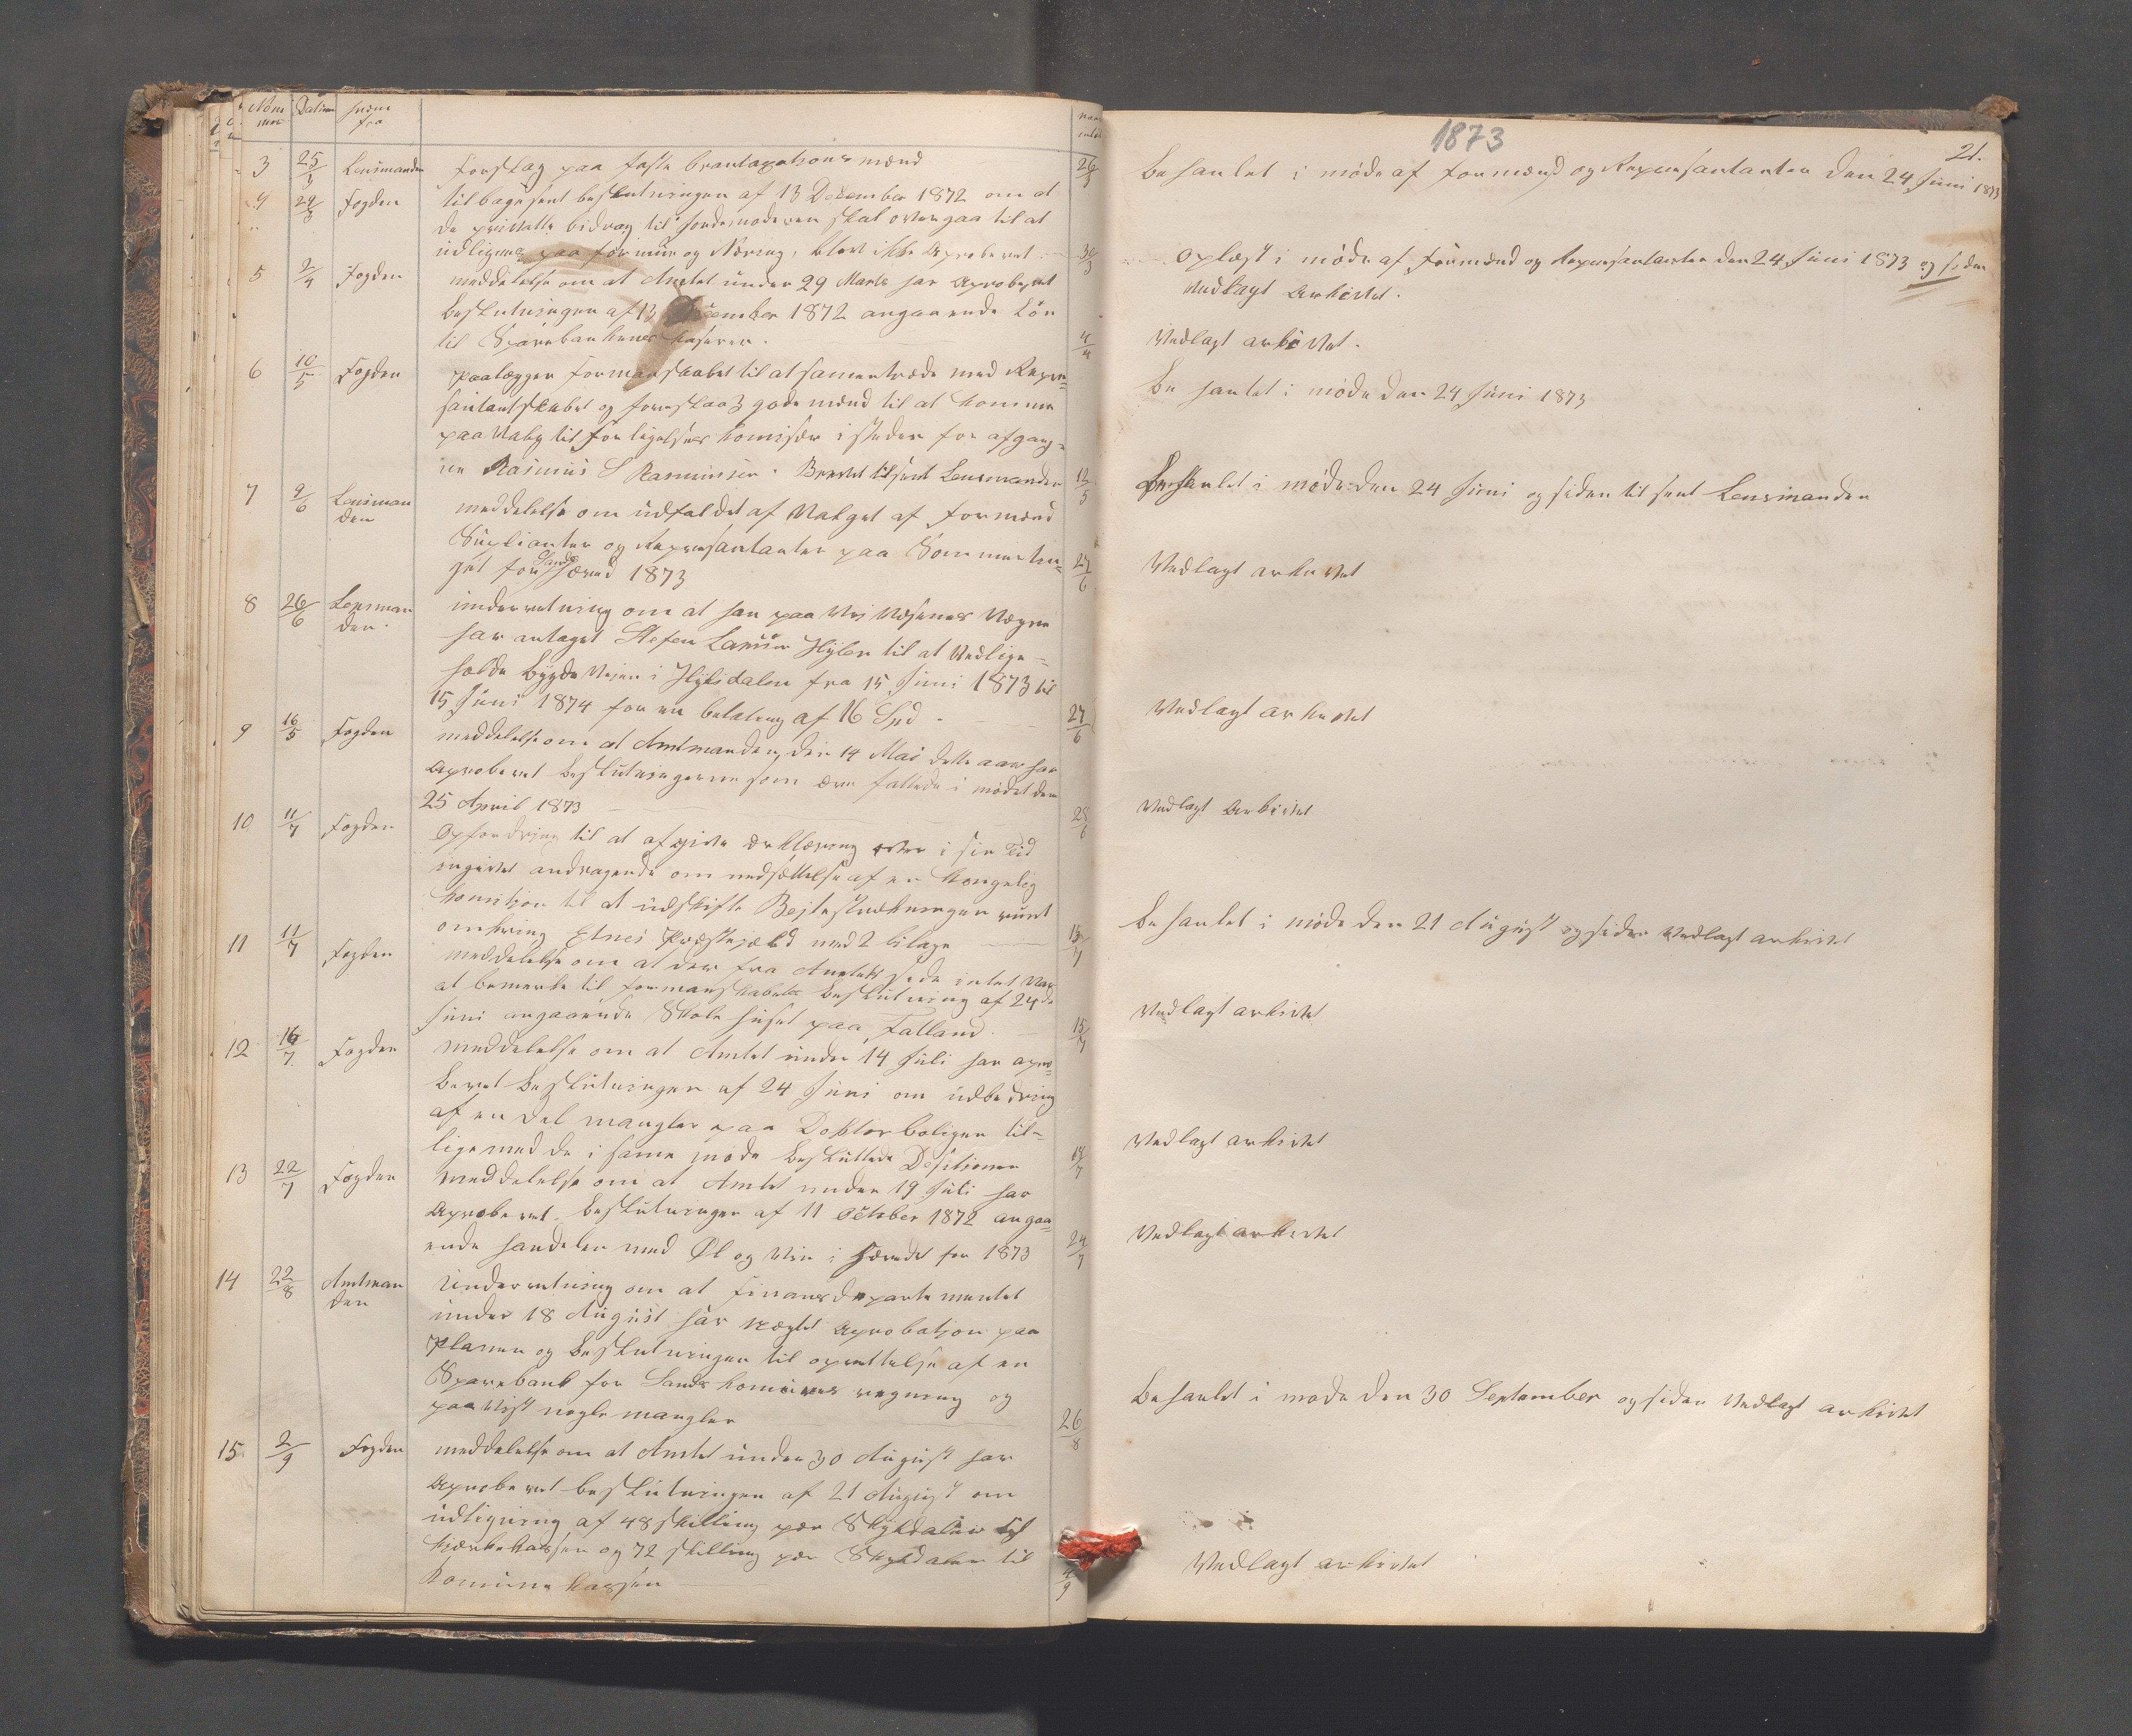 Nom mer Datum hvem fra naar indk
3 25/3 Lensmanden forslag paa faste brantaxations mænd 26/3
4 29/3 Fogden tilbagesent beslutningen af 13 December 1872 om at
de privatte bidrag til Jordemoderen skal overgaa til at
udlignes paa formue og Næring, blev ikke Aproberet 30/3
5 2/4 Fogden meddelelse om at Amtet under 29 Marts har Aproberet
Beslutningen af 13 December 1872 angaaende Løn
til Sparebankens kaserer. 4/4
6 10/5 Fogden Paalægger formanskabet til at samentræde med Repre=
santantskabet og foreslaa 3 gode mænd til at komme
paa Valg til forligelses komisær i steden for afgang=
ne Rasmus S Rasmussen. Brevet tilsent Lensmanden 12/5
7 9/6 Lensman den meddelelse om udfaldet af Valget af formænd
Suplianter og Repræsantanter paa Sommertin=
get for Sands Hæred 1873 27/6
8 26/6 Lensman den. underretning om at han paa Vei Væsenes Vægne
har antaget Stefen Larsen Hylen til at Vedlige=
holde Bygde Veien i Hylsdalen fra 15 Juni 1873 til
15 Juni 1874 for en betaling af 16 Spd. 27/6
9 16/5 Fogden meddelelse om at Amtmanden den 14 Mai dette aar har
Aproberet Beslutningerne som ere fattede i mødet den
25 April 1873 28/6
10 11/7 Fogden Opfordring til at afgive Erklæring over i sin Tid
ingivet andragende om nedsættelse af en kongelig
komition til at udskifte Bejtestrækninger runt
omkring Etnes Præstejæld med 2 bilage 15/7
11 11/7 Fogden meddelelse om at der fra Amtets side intet Var
at bemerke til formanskabets Beslutning af 24de
Juni angaaende Skole huset paa Falland. 15/7
12 16/7 Fogden meddelelse om at Amtet under 14 Juli har apro=
beret Beslutningen af 24 Juni om udbedring
af en del mangler paa Doktorboligen til=
lige med de i same møde Besluttede Desitioner 18/7
13 22/7 Fogden meddelelse om at Amtet under 19 Juli har
Aproberet Beslutningen af 11 October 1872 angaa=
ende handelen med Øl og Vin i Hæredet for 1873 24/7
14 22/8 Amtman den Underretning om at Finansdepartementet
under 18 August har nægtet Aprobatjon paa
Planen og Beslutningen til oprettelse af en
Sparebank for Sands komunes regning og
paa Vist nogle mangler 26/8
15 2/9 Fogden meddelelse om at Amtet under 30 August har
Aproberet beslutningen af 21 August om
udligning af 48 skilling per Skyldaler til
kirkekassen og 72 skilling per Skyldaler til
komune kassen 4/9
1873
21.
Behanlet i møde af formænd og Repræsantanter den 24 Juni 1873
Oplæst i møde af formænd og Repræsantanter den 24 Juni 1873 og siden
Vedlagt Arkivet.
Vedlagt arkivet.
Behanlet i møde den 24 Juni 1873
Behanlet i møde den 24 Juni og siden til sent Lensmanden
Vedlagt arkivet
Vedlagt arkivet
Vedlagt Arkivet
Behanlet i møde den 21 August og siden Vedlagt arkivet
Vedlagt arkivet
Vedlagt arkivet
Vedlagt arkivet
Behanlet i møde den 30 September og siden Vedlagt arkivet
Vedlagt arkivet